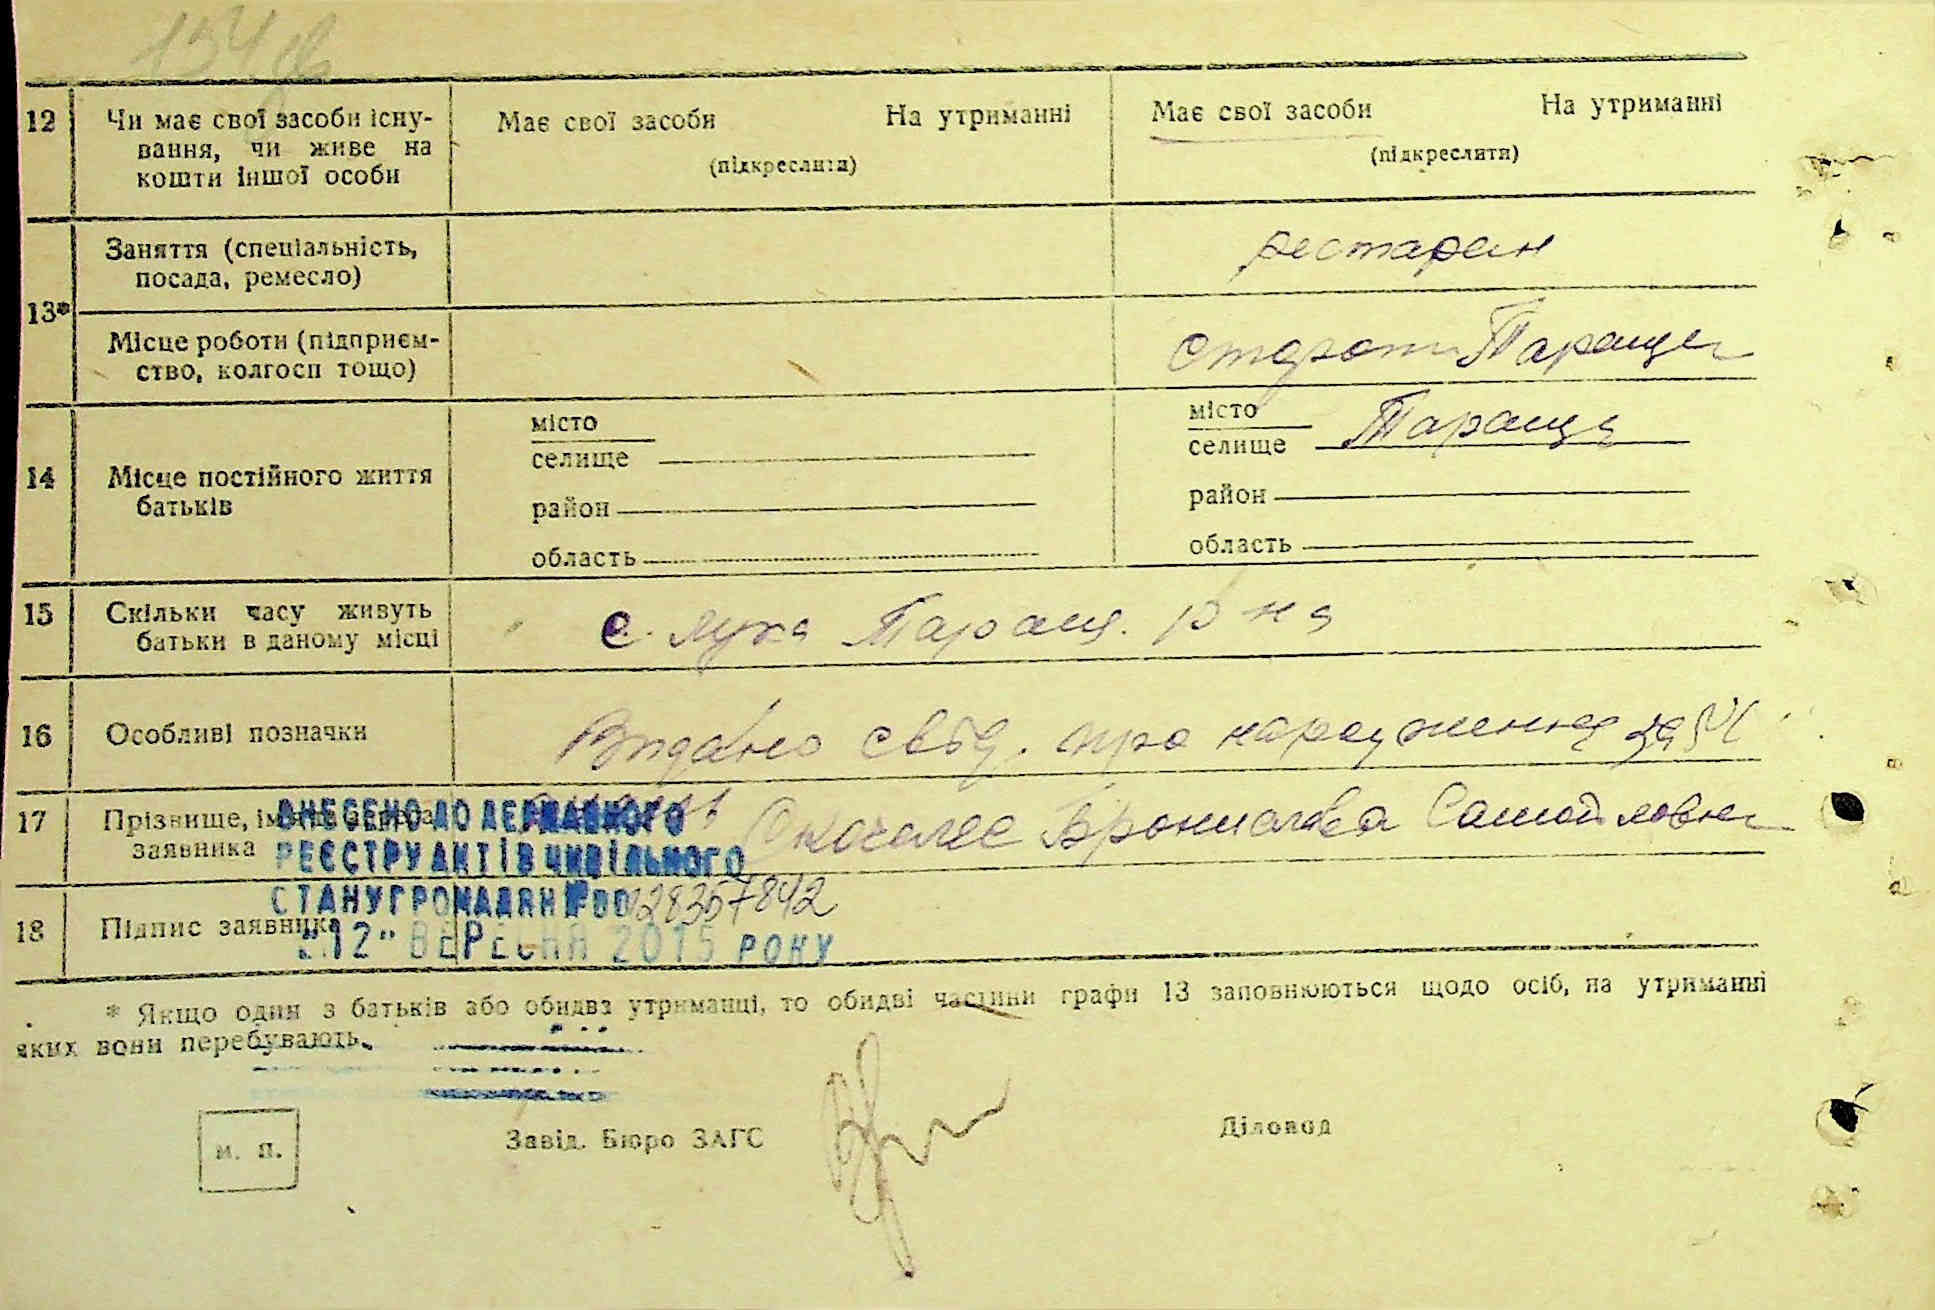 12 Чи має свої засоби існу-
вання, чи живе на
кошти іншої особи
Має свої засоби На утриманні
(підкреслити)
Має свої засоби На утриманні
(підкреслити)
13*
Заняття (спеціальність,
посада, ремесло)
Місце роботи (підприєм-
ство, колгосп тощо)
Тараща
14 Місце постійного життя
батьків
місто
селище
район
область
місто
селище Тараща
район
область
15 Скільки часу живуть
батьки в даному місці
с. Лука Таращ. р-на
16 Особливі позначки
Видано свід. про народження
17 Прізвище, ім'я
заявника
Броніслава Самойловна
18 Підпис заявника
ВНЕСЕНО ДО ДЕРЖАВНОГО
РЕЄСТРУ АКТІВ ЦИВІЛЬНОГО
СТАНУ ГРОМАДЯН № 00128357842
"12" ВЕРЕСНЯ 2015 РОКУ
* Якщо один з батьків або обидва утриманці, то обидві частини графи 13 заповнюються щодо осіб, на утриманні
яких вони перебувають.
м. п.
Завід. Бюро ЗАГС
Діловод